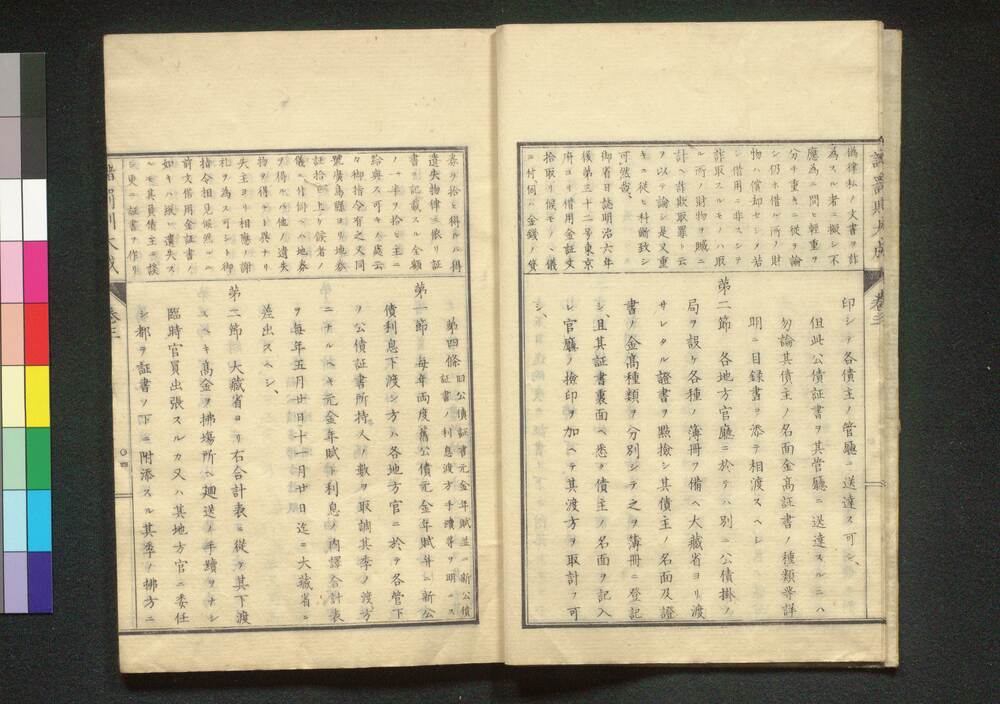 諸罰則大成
卷三
偽律私ノ文書ヲ詐
為スル者ニ擬シ不
應為ニ問ヒ輕重ヲ
分チ重キニ從ヲ論
シ仍ホ借ル所ノ財
物ハ償却セシメ若
シ借用ニ非スシテ
詐取スルモノハ取
ル所ノ財物ヲ贓ニ
計ヘ詐欺取罪ト云
ヲ以テ論シ是又重
キニ從ヒ科斷致シ
可然哉
御省日誌明治六年
後第三十二号東京
府ヨリ借用金証文
拾取リ候モノヘ儀
ニ付伺ニ金錢ノ貸
印シテ各債主ノ管廳ニ送達ス可シ、
但此公債証書ヲ其管廳ニ送達スルニハ
勿論其債主ノ名面金高証書ノ種類等詳
明ニ目録書ヲ添テ相渡スヘシ
第二節 各地方官廳ニ於テハ別ニ公債掛ノ
局ヲ設ケ各種ノ簿冊ヲ備ヘ大藏省ヨリ渡
サレタル證書ヲ點撿シ其債主ノ名面及證
書ノ金高種類ヲ分別シテ之ヲ簿冊ニ登記
シ、且其証書裏面ヘ悉ク債主ノ名面ヲ記入
シ官廳ノ撿印ヲ加ヘテ其渡方ヲ取計フ可
シ、
券ヲ拾ヒ得ルハ得
遺失物律ニ依リ証
書ニ記載スル全額
ノ一半ヲ拾ヒ主ニ
給與ス可キノ處云
々御指令有之又同
號廣島縣ヨリ地券
証拾ヒ上ケ候者ノ
儀ニ付伺ヘハ地券
ヲ得ルハ他ノ遺失
物ヲ得ルト異ナリ
失主ヨリ相應ノ謝
礼ヲ為ス可シト御
指令相見候然ルニ
前文借用金証書ノ
如キハ縱ヒ遺失ス
ルモ其負債主ニ談
シ更ニ証書ヲ作リ
第四條 旧公債証書元金年賦並ニ新公債
証書ノ利息渡方手續等ヲ明ニス
第一節 毎年兩度舊公債元金年賦并ニ新公
債利息下渡シ方ハ各地方官ニ於テ各管下
ノ公債証書所持人ノ數ヲ取調其季ノ渡方
ニナルヘキ元金年賦下利息ノ内譯合計表
ヲ毎年五月廿日十一月廿日迄ニ大藏省ニ
差出スヘシ、
第二節 大藏省ヨリ右合計表ニ從ヲ其下渡
スヘキ高金ヲ拂塲所ヘ廻送ノ手蹟ヲナシ
臨時官員出張スルカ又ハ其地方官ニ委任
シ都テ証書ノ下ニ附添スル其季ノ拂方ニ
諸罰則大成
卷三
〇四